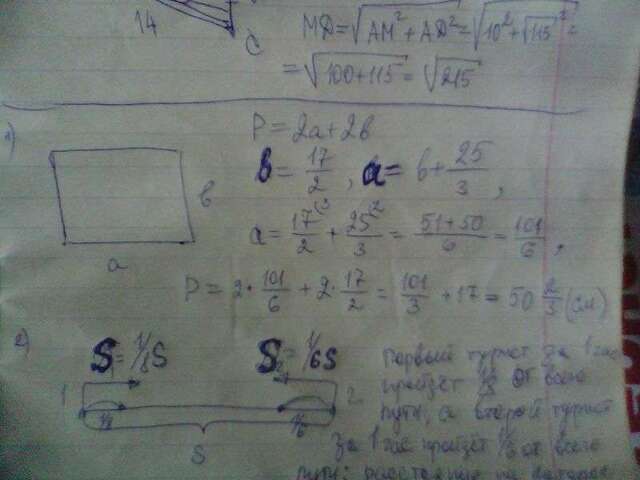 14
C
MD = √AM² + AD² = √10² + √115² =
= √100 + 115 = √215
1)
P = 2a + 2b
b = 17/2 , a = b + 25/3 ,
b
a = 17/2 + 25/3 = 51 + 50/6 = 101/6 ,
a
P = 2 · 101/6 + 2 · 17/2 = 101/3 + 17 = 50 2/3 (см)
2)
S₁ = 1/8 S
S₂ = 1/6 S
1
2
1/8
1/6
S
первый турист за 1 час
пройдёт 1/8 от всего
пути, а второй турист
за 1 час пройдёт 1/6 от всего
пути; расстояние на которое